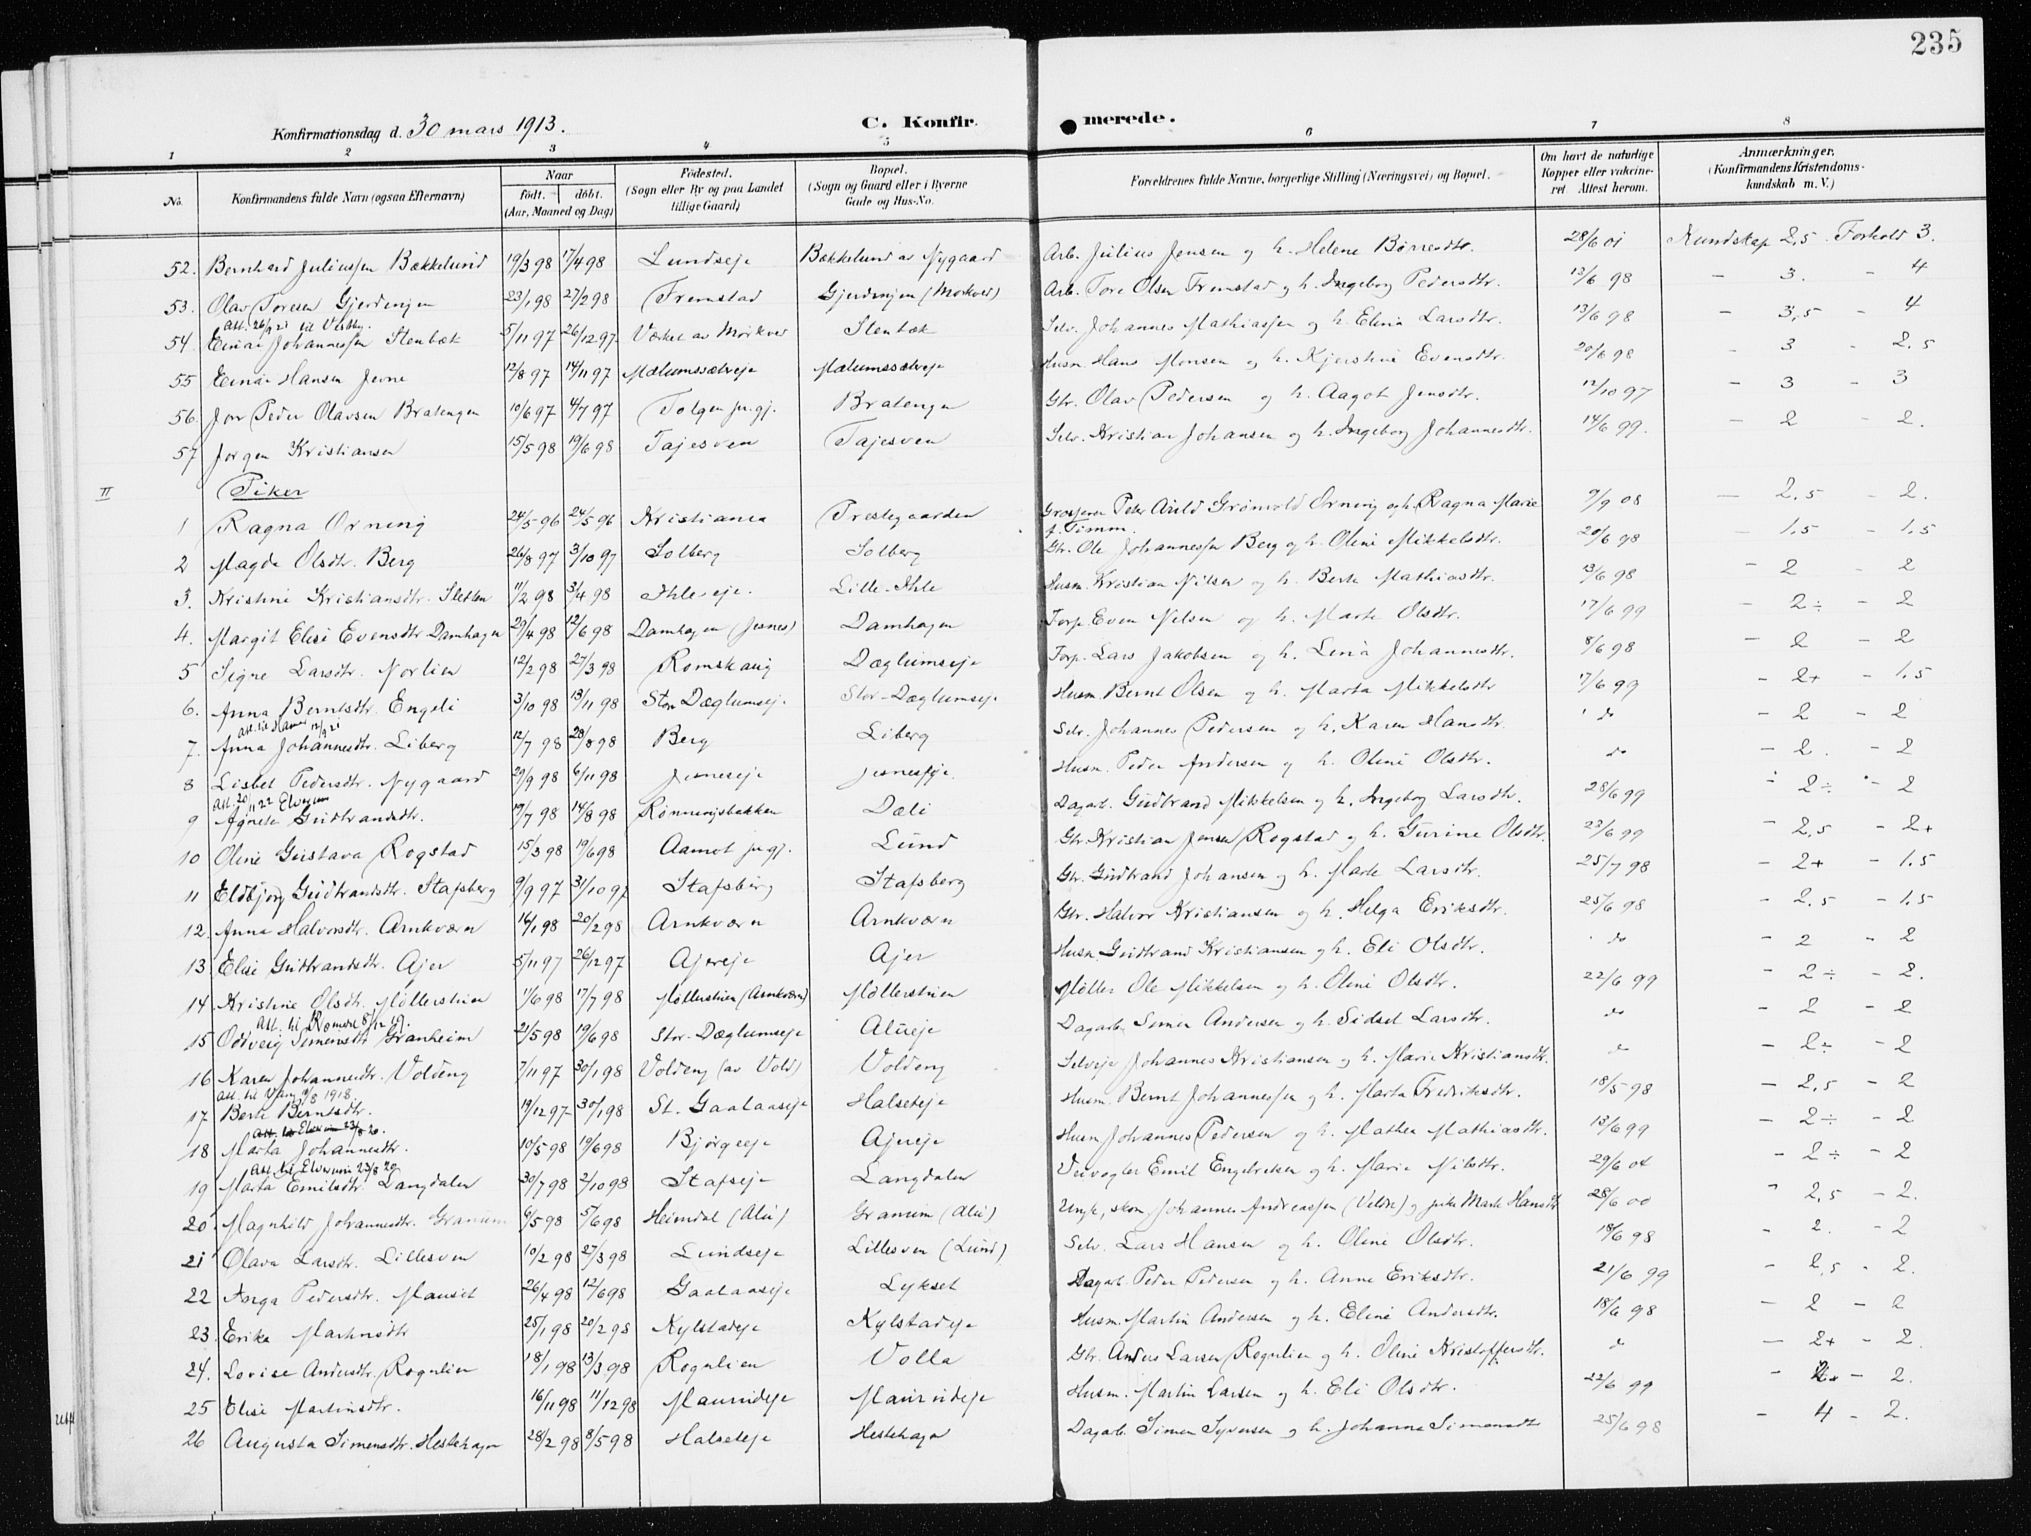 235
Konfirmationsdag d. 30 mars 1913. C. Konfirmerede.
1 2 3 4 5 6 7 8
No. Konfirmandens fulde Navn (ogsaa Efternavn) Naar født. døbt. (Aar, Maaned og Dag) Fødested. (Sogn eller By og paa Landet tillige Gaard) Bopæl. (Sogn og Gaard eller i Byerne Gade og Hus-No. Forældrenes fulde Navne, borgerlige Stilling (Næringsvei) og Bopæl. Om havt de naturlige Kopper eller vakcineret Attest herom. Anmærkninger. (Konfirmandens Kristendomskundskab m. V.)
52. Bernhard Juliussen Bækkelund 19/3 98 17/4 98 Lundseje Bækkelund av Nygaard Arb. Julius Jensen og h. Helene Børresdtr. 28/6 01 Kundskap 2,5 Forhold 3.
53. Olav Toresen Gjerdengen 23/1 98 27/2 98 Fremstad Gjerdengen (Mørkved) Arb. Tore Olsen Fremstad og h. Ingeborg Pedersdtr. 13/6 98 - 3. - 4
Att. 26/9 21 til
54. Einar Johannessen Stenbæk 5/11 97 26/12 97 Mørkved Stenbæk Selv. Johannes Mathiassen og h. Elina Larsdtr. 13/6 98 - 3,5 - 4
55 Einar Hansen Jevne 12/8 97 14/11 97 Mælumssætreje Mælumssætreje Husm. Hans Monsen og h. Kjerstine Evensdtr. 20/6 98 - 3 - 2.5
56. Jon Peder Olavsen Bratengen 10/6 97 4/7 97 Tolgen prgj. Bratengen Gbr. Olav Pedersen og h. Aagot Jensdtr. 12/10 97 - 3 - 3
57 Jørgen Kristiansen 15/5 98 19/6 98 Tajesveen Tajesveen Selv. Kristian Johansen og h. Ingeborg Johannesdtr. 14/6 99. - 2 2.
II Piker
1 Ragna Orning 24/5 96 24/5 96 Kristiania Prestegaarden Grosserer Peter Arild Grønvold Orning og h. Ragna Marie f. Timm. 9/9 08 - 2,5 - 2.
2 Magda Olsdtr. Berg 26/8 97 3/10 97 Solberg Solberg Gbr. Ole Johannessen Berg og h. Oline Mikkelsdtr. 20/6 98 - 1,5 - 1,5
3. Kristine Kristiansdtr. Sletten 11/2 98 3/4 98 Ihleseje. Lille-Ihle Husm. Kristian Nilsen og h. Berte Mathiasdtr. 13/6 98 - 2 - 2
4. Margit Elise Evensdtr. Damhagen 29/4 98 12/6 98 Damhagen (Jesnes) Damhagen Torp. Even Nilsen og h. Marte Olsdtr. 17/6 99 - 2÷ - 2
5 Signe Larsdtr. Norlien 12/2 98 27/3 98 Romskaug Dæglumseje Torp. Lars Jakobsen og h. Lina Johannesdtr. 8/6 98 - 2 - 2
6. Anna Berntsdtr. Engeli 3/10 98 13/11 98 Stor Dæglumsej. Stor-Dæglumseje Husm. Bernt Olsen og h. Marta Mikkelsdtr 17/6 99 - 2+ - 1,5
att. til Hamar 12/9 21
7. Anna Johannesdtr. Liberg 12/7 98 28/8 98 Berg Liberg Selv. Johannes Pedersen og h. Karen Hansdtr. do - 2 - 2
8 Lisbet Pedersdtr. Nygaard 29/9 98 6/11 98 Jesneseje Jesneseje. Husm. Peder Andersen og h. Oline Olsdtr. do - 2. - 2
Att. 20/11 22 Elverum
9 Agnete Gudbrandsdtr. 19/7 98 14/8 98 Rønningsbakken Dæli Dagarb. Gudbrand Mikkelsen og h. Ingeborg Larsdtr. 28/6 99 - 2÷ - 2
10 Oline Gustava Rogstad 15/3 98 19/6 98 Aamot prgj. Lund Gbr. Kristian Jensen Rogstad og h. Gurine Olsdtr. 23/6 99 - 2,5 - 2+
11 Eldbjørg Gudbrandsdtr. Stafsberg 9/9 97 31/10 97 Stafsberg Stafsberg Gbr. Gudbrand Johansen og h. Marte Larsdtr. 25/7 98 - 2+ - 1.5
12. Anna Halvorsdtr. Arnkværn 16/1 98 20/2 98 Arnkværn Arnkværn Gbr. Halvor Kristiansen og h. Helga Eriksdtr. 25/6 98 - 2,5 - 1,5
13. Elise Gudbrandsdtr. Ajer 5/11 97 26/12 97 Ajereje Ajer Husm. Gudbrand Kristiansen og h. Eli Olsdtr. do - 2 - 2
14 Kristine Olsdtr. Møllerstuen 11/6 98 17/7 98 Møllerstuen (Arnkværn) Møllerstuen Møller Ole Mikkelsen og h. Oline Olsdtr. 22/6 99 - 2÷ - 2.
Att. til Romere 8/12 19.
15 Oddveig Simensdtr Granheim 21/5 98 19/6 98 Stor-Dæglumseje Alueje Dagarb. Simen Andersen og h. Sidsel Larsdtr. do - 2 - 2
16 Karen Johannesdtr. Voldeng 7/11 97 30/1 98 Voldeng (av Vold) Voldeng Selveje Johannes Kristiansen og h. Marie Kristiansdtr. do - 2÷ - 2
att. til Vang 9/8 1918
17 Berte Berntsdtr. 19/12 97 30/1 98 St. Gaalaaseje Halseteje Husm. Bernt Johannessen og h. Marta Fredriksdtr. 18/5 98 - 2,5 - 2
Att. til Elverum 23/8 20.
18 Marta Johannesdtr. 10/5 98 19/6 98 Bjørgeeje Ajereje Husm. Johannes Pedersen og h. Mathea Mathiasdtr. 13/6 99 - 2÷ - 2
Att. til Elverum 23/8 20
19 Marta Emilsdtr. Langdalen 30/7 98 2/10 98 Stafseje Langdalen Veivogter Emil Engebretsen og h. Marie Nilsdtr. 29/6 04 - 2÷ - 2
20 Magnhild Johannesdtr. Granum 6/5 98 5/6 98 Heimdal (Alu) Granum (Alu) Ungk., skom. Johannes Andreassen (Veldre) og pike Marte Hansdtr 28/6 00 - 2,5 - 2.
21 Olava Larsdtr. Lillesven 10/2 98 27/3 98 Lundseje Lillesven (Lund) Selv. Lars Hansen og h. Oline Olsdtr. 18/6 98 - 2. - 2
22 Aarga Pedersdtr. Mauset 26/4 98 12/6 98 Gaalaaseje Lykset Dagarb. Peder Pedersen og h. Anne Eriksdtr. 21/6 99 - 2,5 - 2.
23. Erika Martinsdtr 25/1 98 20/2 98 Kylstadeje Kylstadeje Husm. Martin Andersen og h. Eline Andersdtr. 18/6 98 - 2 - 2
24. Lovise Andersdtr. Rognlien 18/1 98 13/3 98 Rognlien Volla Gbr. Anders Larsen Rognlien og h. Oline Kristoffersdtr. do - 2+ - 2.
25 Elise Martinsdtr. 16/11 98 11/12 98 Maurudeje Maurudeje Husm. Martin Larsen og h. Eli Olsdtr. 22/6 99 - 2. - 2.
26 Augusta Simensdtr. Hestehagen 28/2 98 8/5 98 Halseteje Hestehagen Dagarb. Simen Syversen og h. Johanna Simensdtr 25/6 98 - 4 - 2.